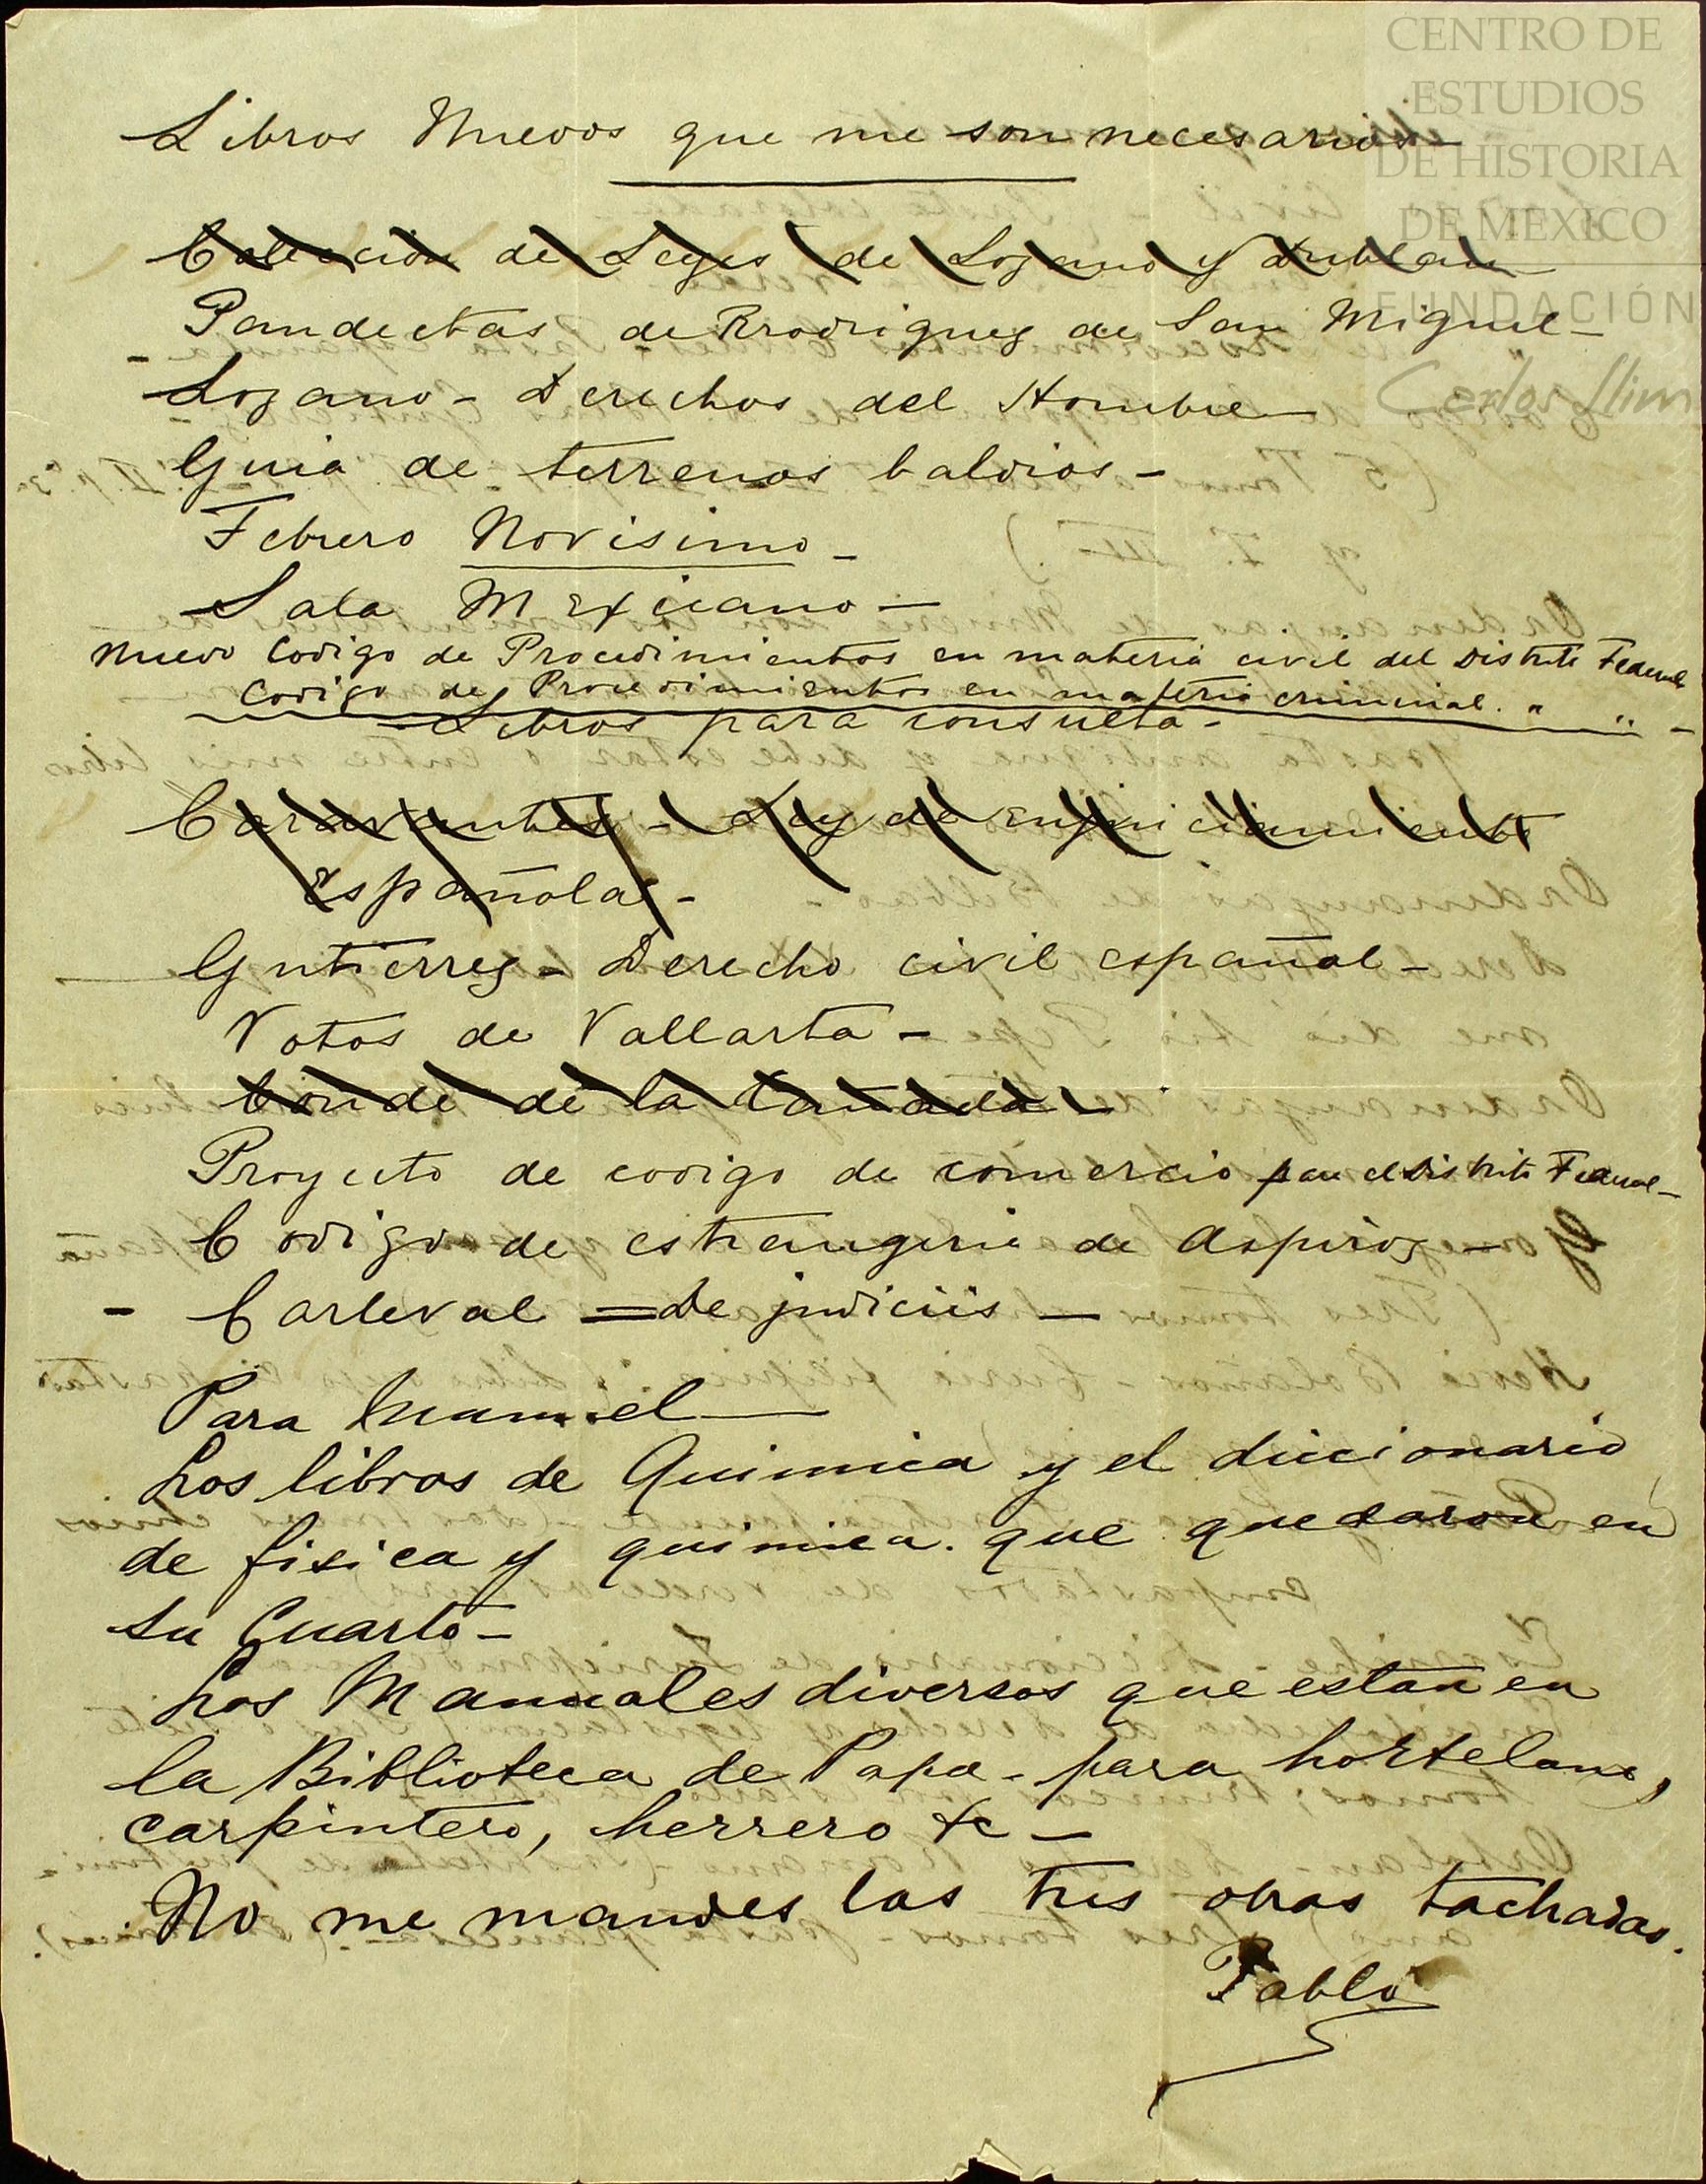 CENTRO DE
ESTUDIOS
DE HISTORIA
DE MEXICO
FUNDACIÓN
Carlos Slim
Libros Nuevos que me son necesarios
Colección de Leyes de Lozano y Dublan
Pandectas de Rrodriguez de San Miguel
Lozano - Derechos del Hombre
Guia de terrenos baldios -
Febrero Novisimo -
Sala Mexicano -
Nuevo Codigo de Procedimientos en materia civil del Distrito Federal
Codigo de Procedimientos en materia criminal. " "
Libros para consulta -
Caravantes - Ley de enjuiciamiento
española -
Gutierrez - Derecho civil español -
Votos de Vallarta -
Conde de la Cañada -
Proyecto de codigo de comercio para el Distrito Federal -
Codigo de estrangeria de Aspiroz -
- Carleval = De judiciis -
Para Manuel
Los libros de Quimica y el diccionario
de fisica y quimica. que quedaron en
su Cuarto -
Los Manuales diversos que estan en
la Biblioteca de Papa - para hortelano,
carpintero, herrero &c -
No me mandes las tres obras tachadas.
Pablo